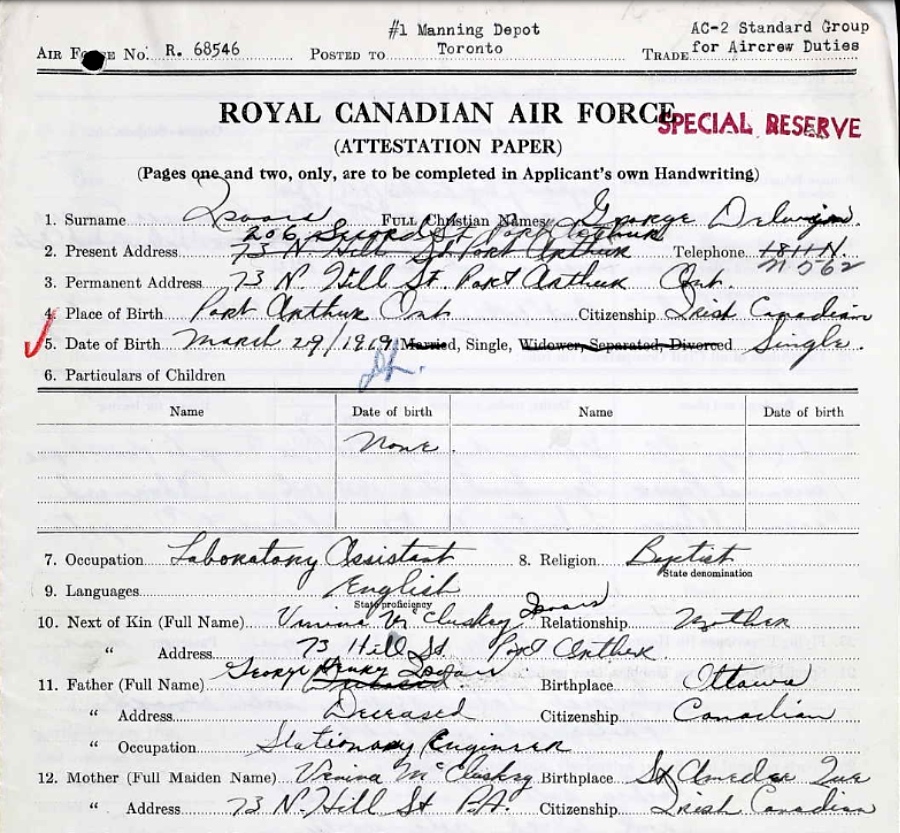 #1 Manning Depot AC-2 Standard Group
AIR FORCE NO. R. 68546 POSTED TO Toronto TRADE for Aircrew Duties
ROYAL CANADIAN AIR FORCE
SPECIAL RESERVE
(ATTESTATION PAPER)
(Pages one and two, only, are to be completed in Applicant's own Handwriting)
1. Surname FULL Christian Names George
206 Second St Port Arthur
2. Present Address 73 N. Hill St. Port Arthur Telephone 1811 N.
3. Permanent Address 73 N. Hill St. Port Arthur Ont.
4. Place of Birth Port Arthur Ont Citizenship Irish Canadian
5. Date of Birth March 29/1919 Married, Single, Widower, Separated, Divorced Single.
6. Particulars of Children
Name Date of birth Name Date of birth
None.
7. Occupation Laboratory Assistant 8. Religion Baptist
State denomination
9. Languages English
State proficiency
10. Next of Kin (Full Name) McCluskey Relationship Mother
" Address 73 Hill St Port Arthur
11. Father (Full Name) George Henry Birthplace Ottawa
" Address Deceased Citizenship Canadian
" Occupation Stationary Engineer
12. Mother (Full Maiden Name) McCluskey Birthplace Que
" Address 73 N. Hill St P.A. Citizenship Irish Canadian